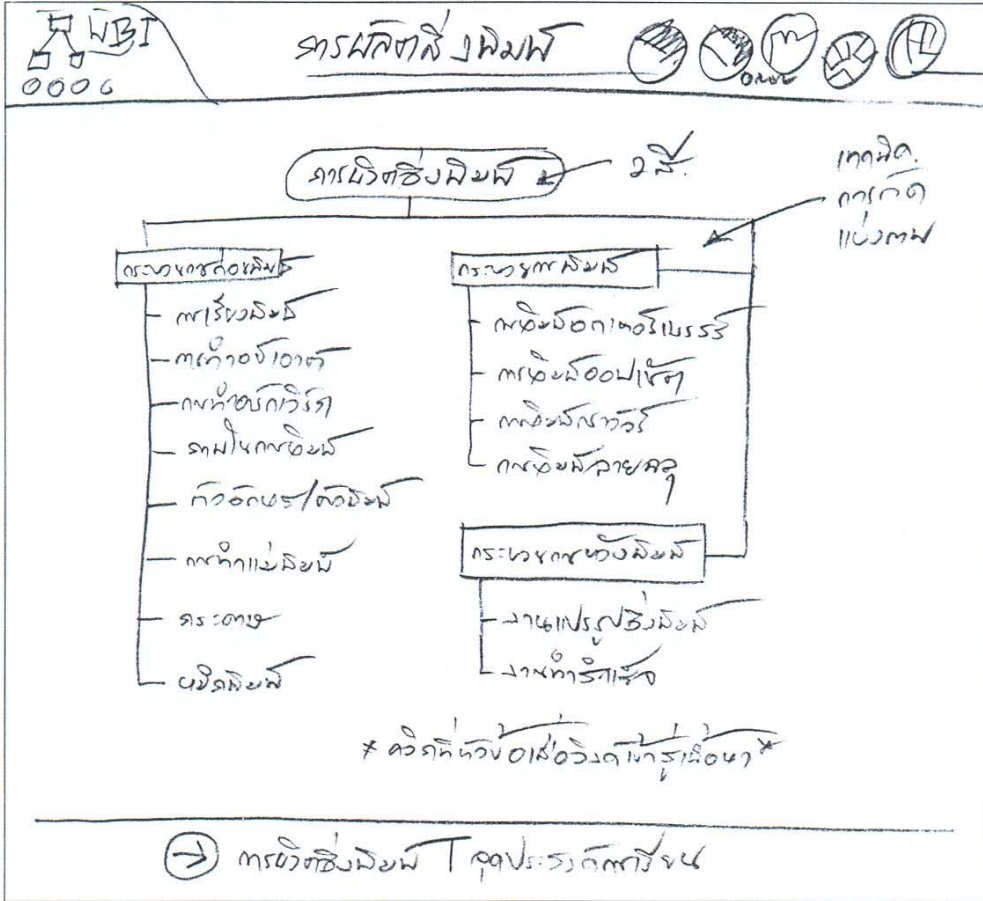 WBI
การผลิตสิ่งพิมพ์
การผลิตสิ่งพิมพ์
2 สี.
เทคนิค.
การกัด
กระบวนการก่อนพิมพ์
การเรียงพิมพ์
การทำอาร์ตเวิร์ค
ภาพในการพิมพ์
ตัวอักษร/ตัวพิมพ์
การทำแม่พิมพ์
กระดาษ
หมึกพิมพ์
กระบวนการพิมพ์
การพิมพ์เลตเตอร์เพรสส์
การพิมพ์ออฟเซ็ต
การพิมพ์กราวัวร์
การพิมพ์ลายฉลุ
กระบวนการหลังพิมพ์
งานแปรรูปสิ่งพิมพ์
งานทำสำเร็จ
* คลิกที่หัวข้อเพื่อลิงค์เข้าสู่เนื้อหา *
การผลิตสิ่งพิมพ์ | จุดประสงค์การเรียน